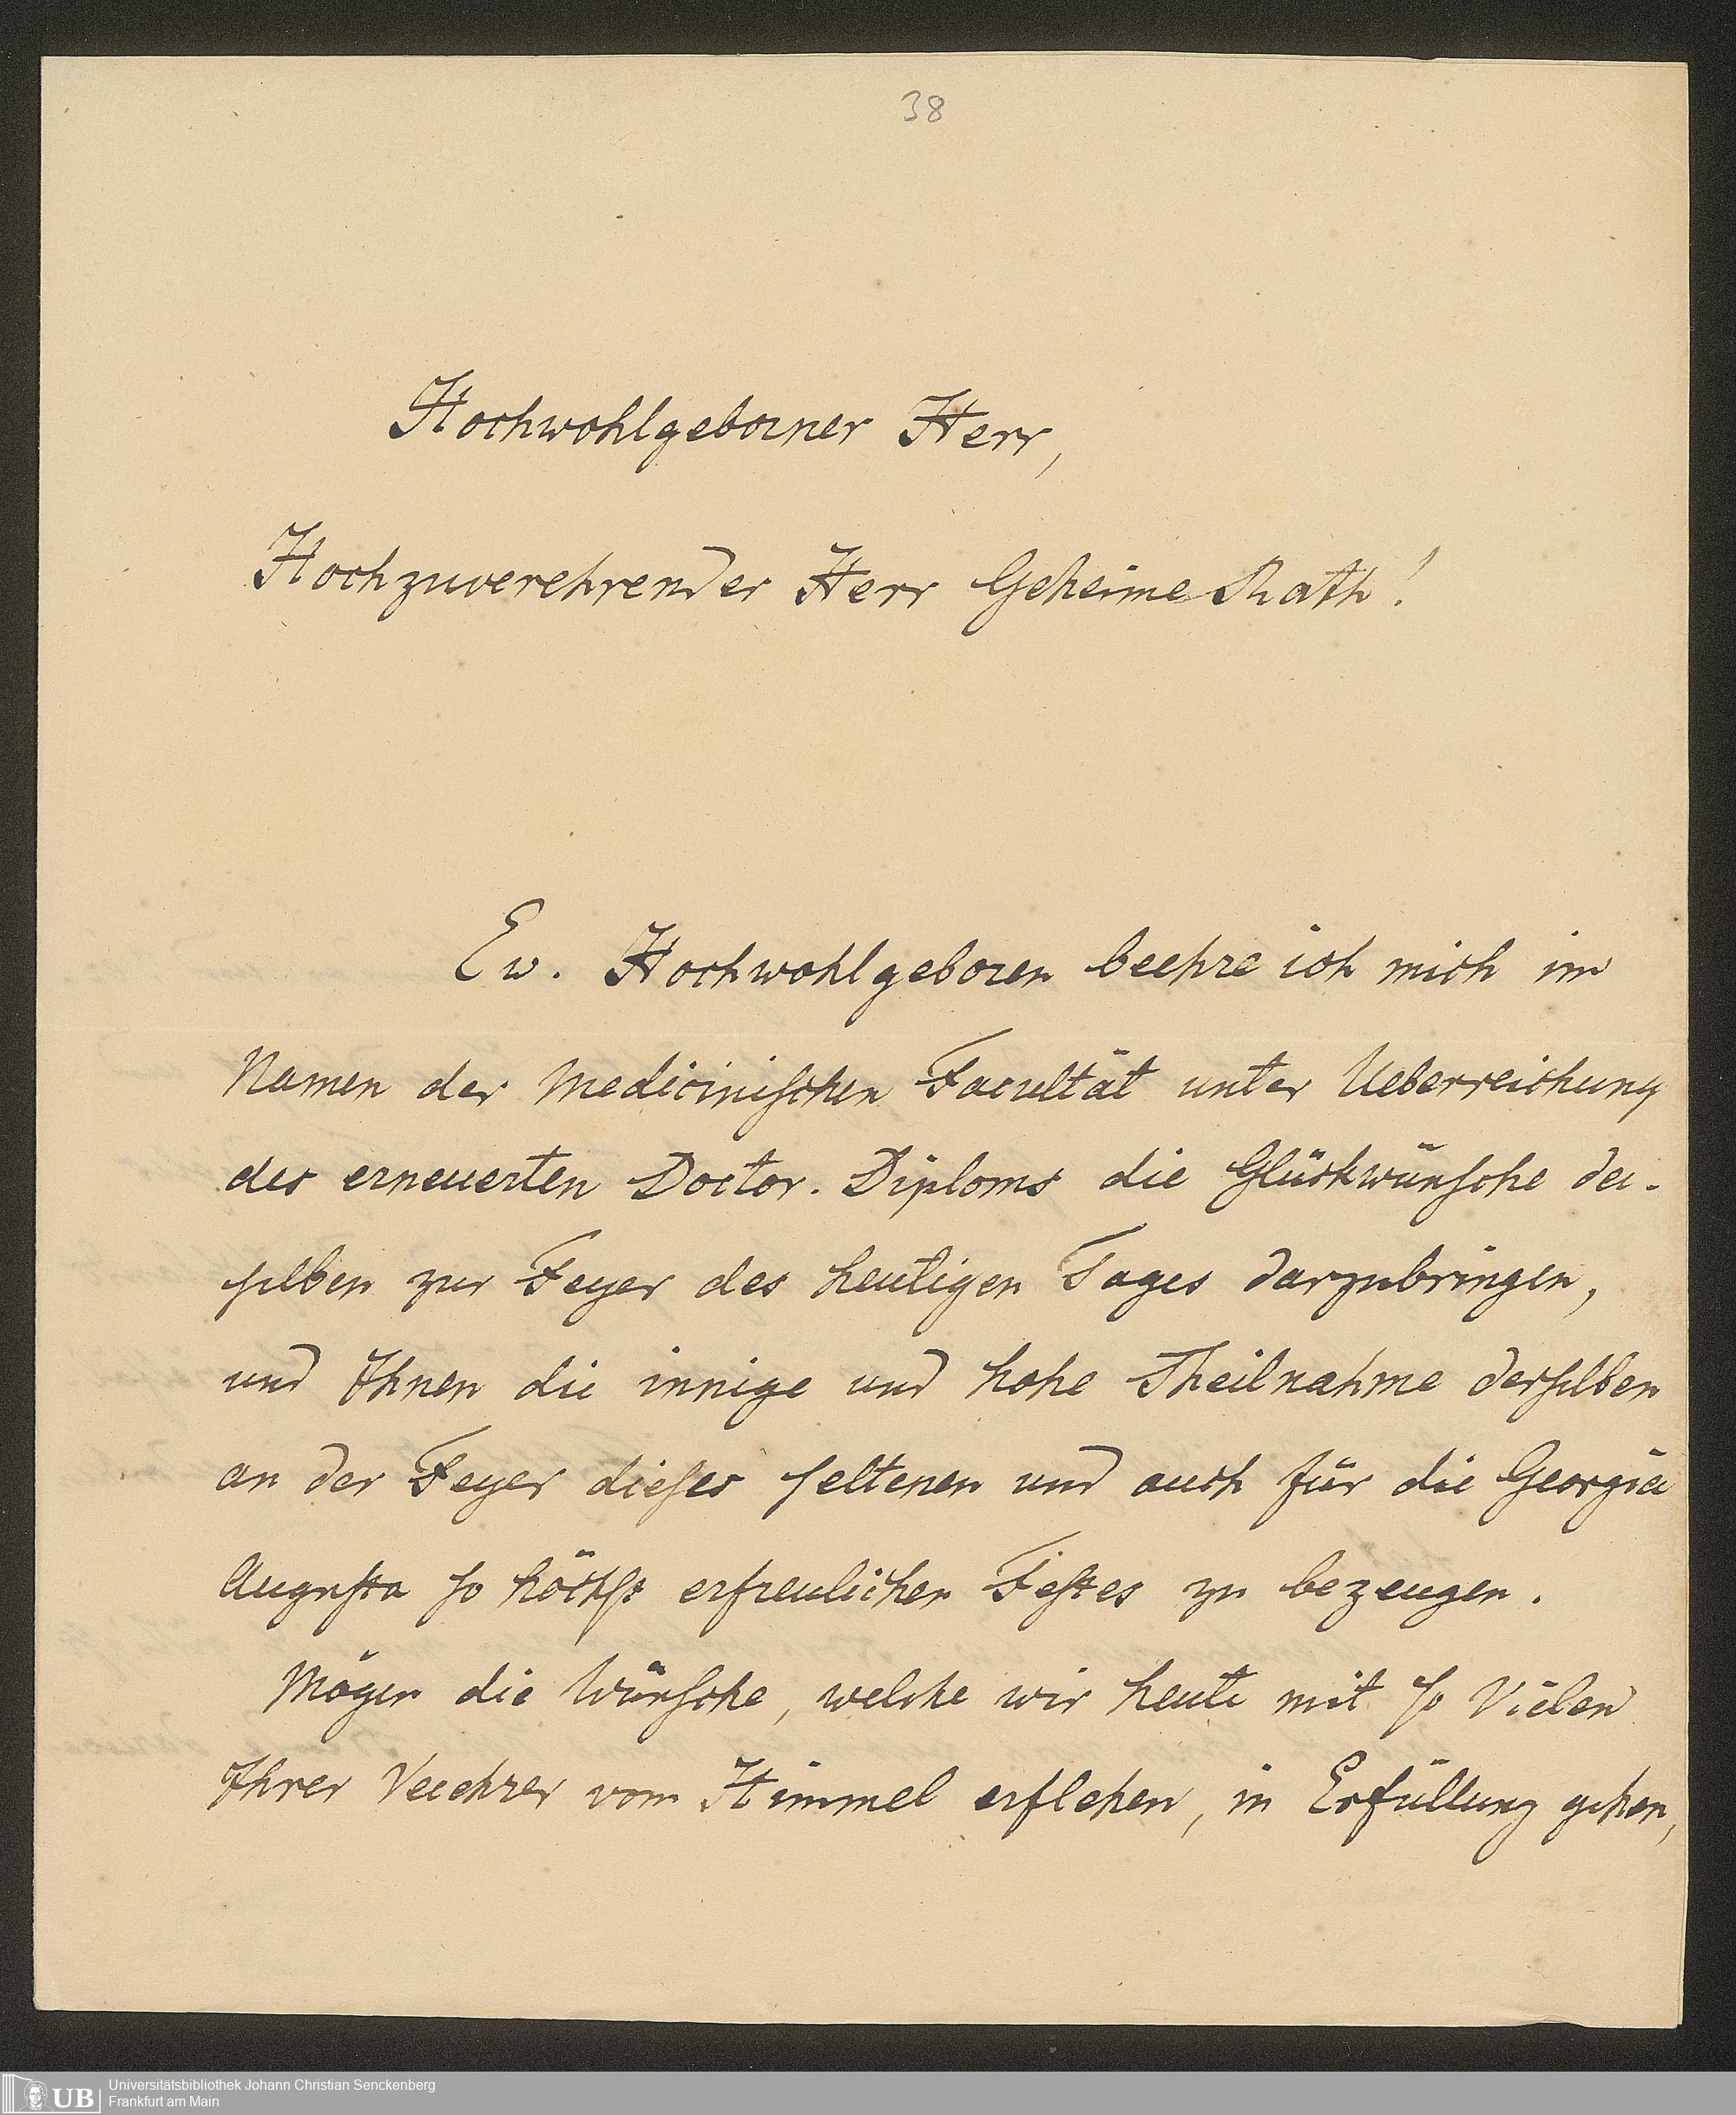 38
Hochwohlgeborner Herr,
Hochzuverehrender Herr Geheime Rath!
Ew. Hochwohlgeboren beehre ich mich im
Namen der Medicinischen Facultät unter Ueberreichung
des erneuerten Doctor-Diploms die Glückwünsche der-
selben zur Feyer des heutigen Tages darzubringen,
und Ihnen die innige und hohe Theilnahme derselben
an der Feyer dieses seltenen und auch für die Georgia
Augusta so höchst erfreulichen Festes zu bezeugen.
Mögen die Wünsche, welche wir heute mit so Vielen
Ihrer Verehrer vom Himmel erflehen, in Erfüllung gehen,
UB
Universitätsbibliothek Johann Christian Senckenberg
Frankfurt am Main